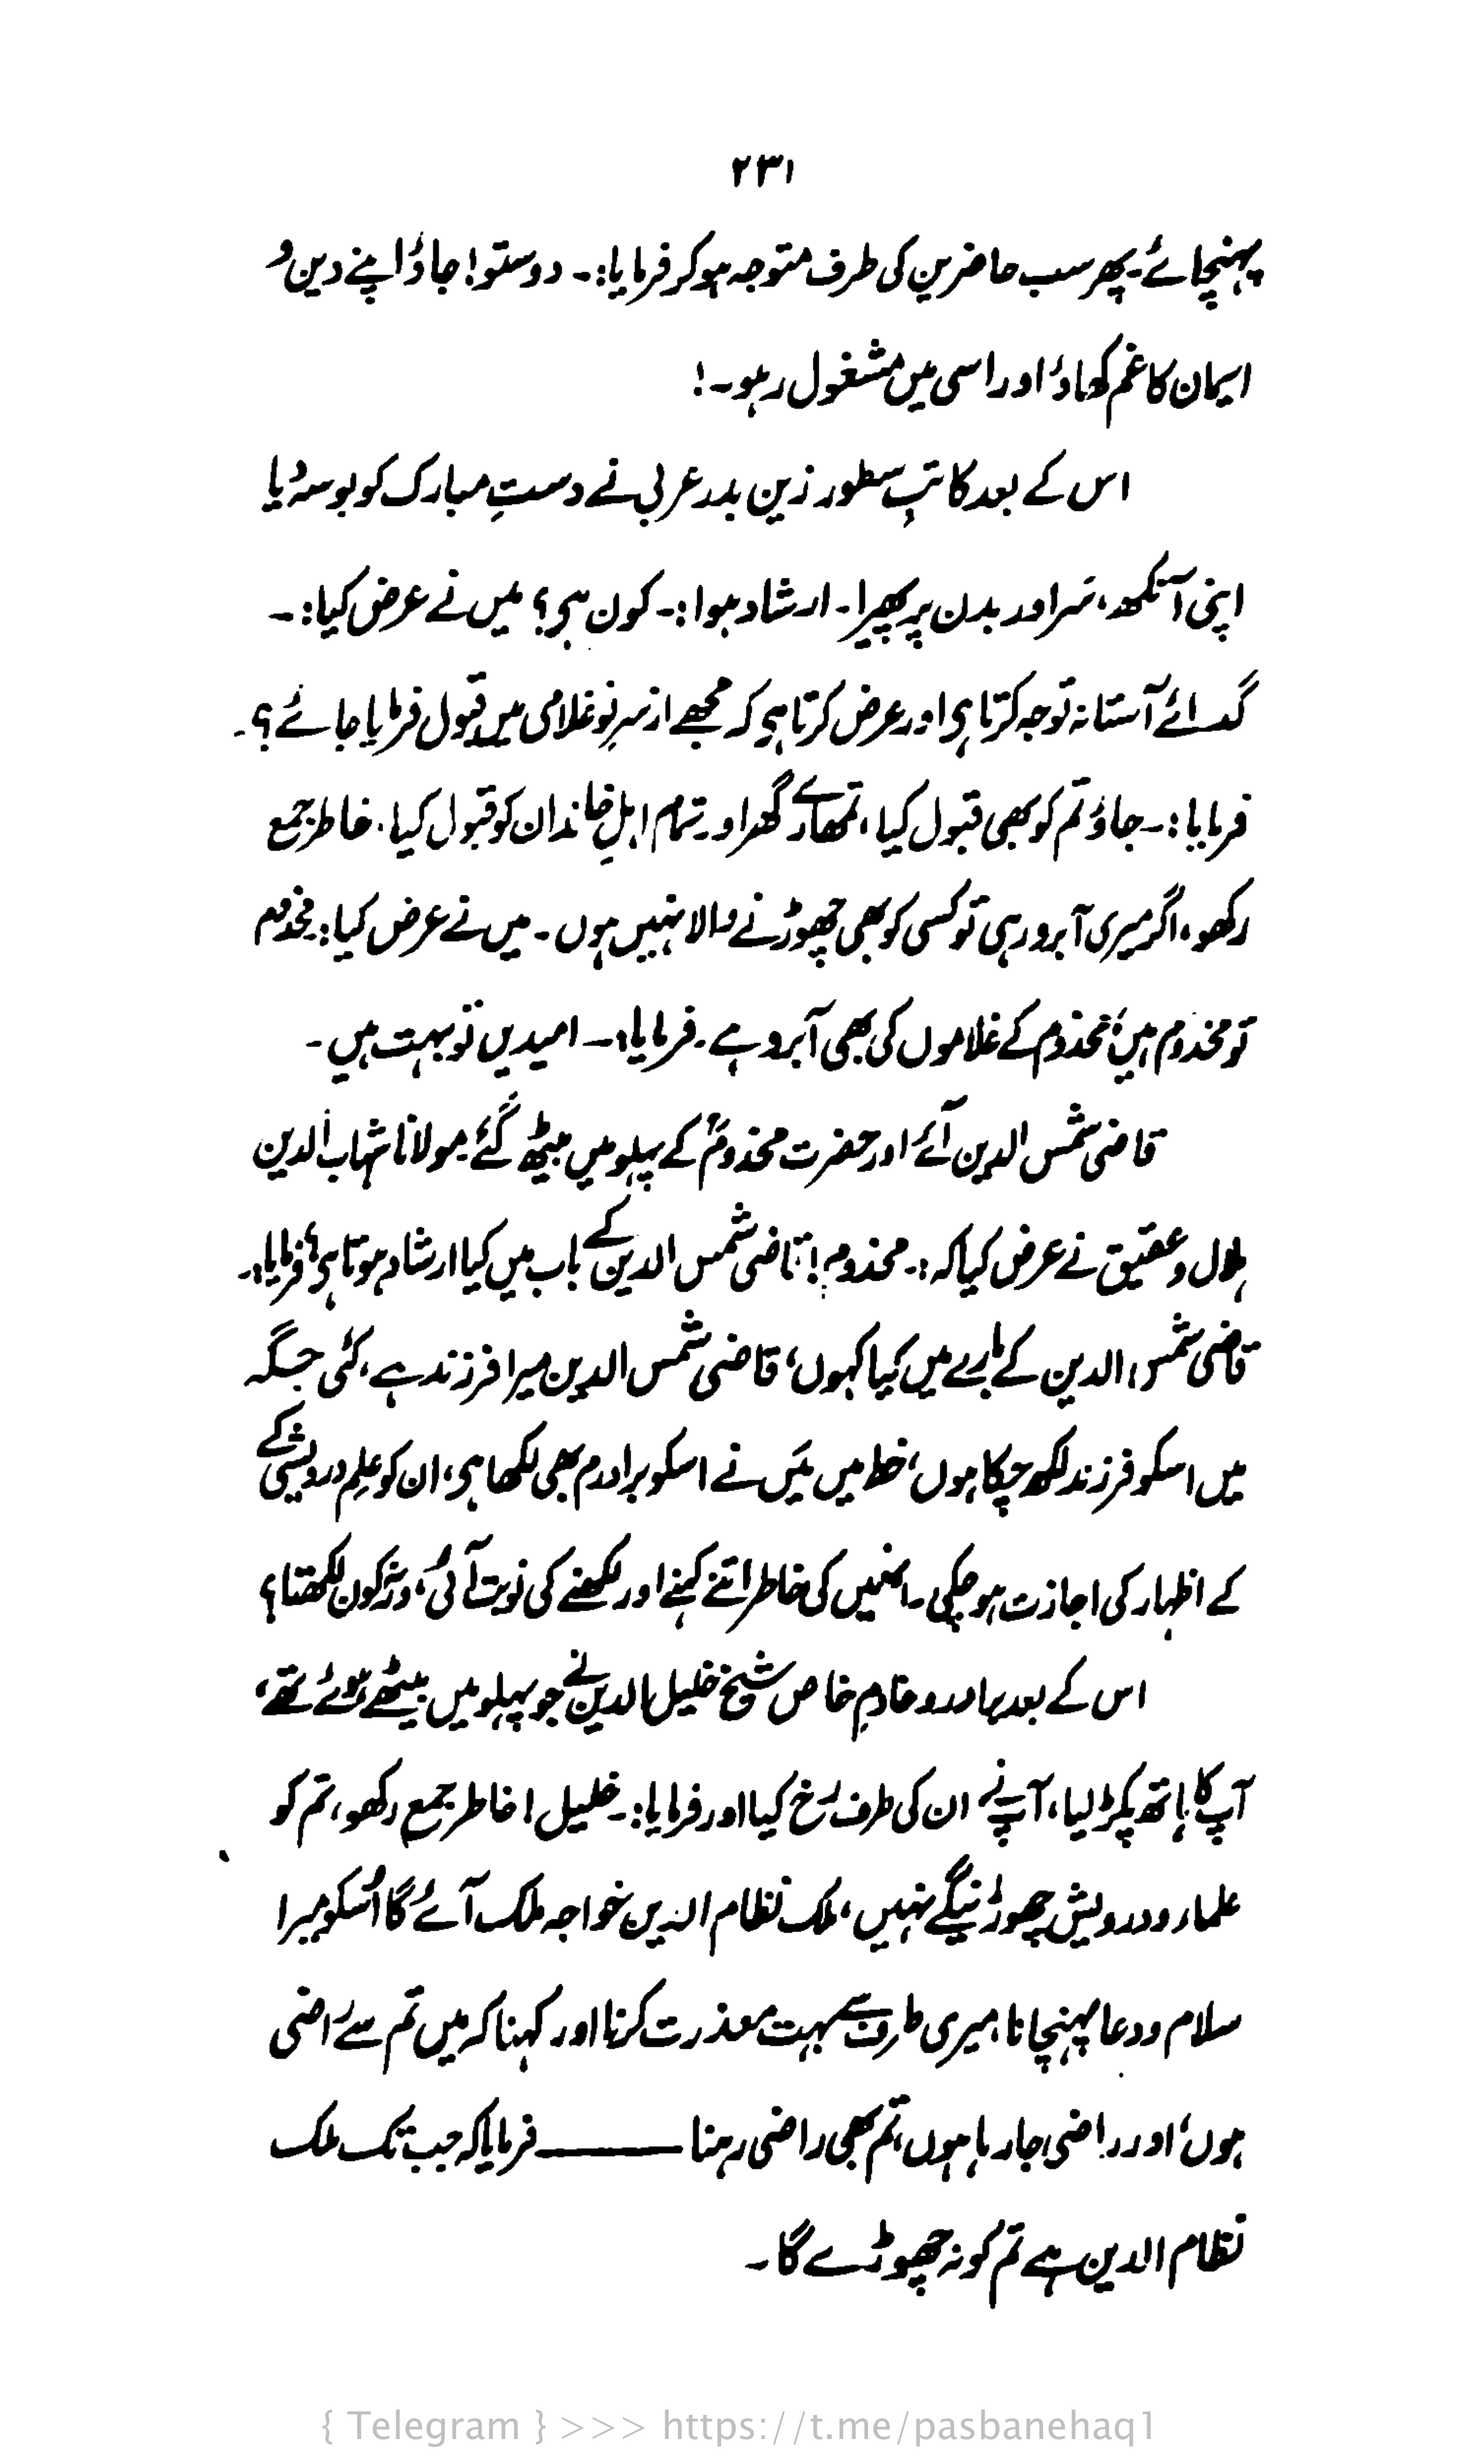 ۲۳۱
پہنچائے۔ پھر سب حاضرین کی طرف متوجہ ہو کر فرمایا:۔ دوستو! جاؤ اپنے دین و
ایمان کا غم کھاؤ اور اسی میں مشغول رہو۔!
اس کے بعد کاتبِ سطور زین بدر عربی نے دستِ مبارک کو بوسہ دیا
اپنی آنکھ، سر اور بدن پر پھیرا۔ ارشاد ہوا:۔ کون ہی؟ میں نے عرض کیا:۔
گدائے آستانہ توجہ کرتا ہی اور عرض کرتا ہی کہ مجھے از سرِ نو غلامی میں قبول فرمایا جائے؟۔
فرمایا:۔ جاؤ تم کو بھی قبول کیا، تمھارے گھر اور تمام اہلِ خاندان کو قبول کیا۔ خاطر جمع
رکھو، اگر میری آبرو رہی تو کسی کو بھی چھوڑنے والا نہیں ہوں۔ میں نے عرض کیا: مخدوم
تو مخدوم ہیں، مخدوم کے غلاموں کی بھی آبرو ہے۔ فرمایا:۔ امیدیں تو بہت ہیں۔
قاضی شمس الدین آئے اور حضرت مخدومؒ کے پہلو میں بیٹھ گئے۔ مولانا شہاب الدین
ہلال و عقیق نے عرض کیا کہ:۔ مخدوم! قاضی شمس الدین کے باب میں کیا ارشاد ہوتا ہی؟ فرمایا:۔
قاضی شمس الدین کے بارے میں کیا کہوں، قاضی شمس الدین میرا فرزند ہے، کئی جگہ
میں اسکو فرزند لکھ چکا ہوں، خط میں میں نے اسکو برادرم بھی لکھا ہی، ان کو علمِ درویشی کے
کے اظہار کی اجازت ہو چکی۔ انھیں کی خاطر اتنے کہنے اور لکھنے کی نوبت آئی، ورنہ کون لکھتا؟
اس کے بعد برادر و خادمِ خاص شیخ خلیل الدین نے جو پہلو میں بیٹھے ہوئے تھے،
آپ کا ہاتھ پکڑ لیا، آپ نے ان کی طرف رُخ کیا اور فرمایا:۔ خلیل! خاطر جمع رکھو، تم کو
علماء و درویش چھوڑینگے نہیں، ملک نظام الدین خواجہ ملک آئے گا اُسکو میرا
سلام و دعا پہنچانا، میری طرف سے بہت معذرت کرنا اور کہنا کہ میں تم سے راضی
ہوں، اور راضی جا رہا ہوں، تم بھی راضی رہنا ——— فرمایا کہ جب تک ملک
نظام الدین ہے تم کو نہ چھوڑے گا۔
{ Telegram } >>> https://t.me/pasbanehaq1